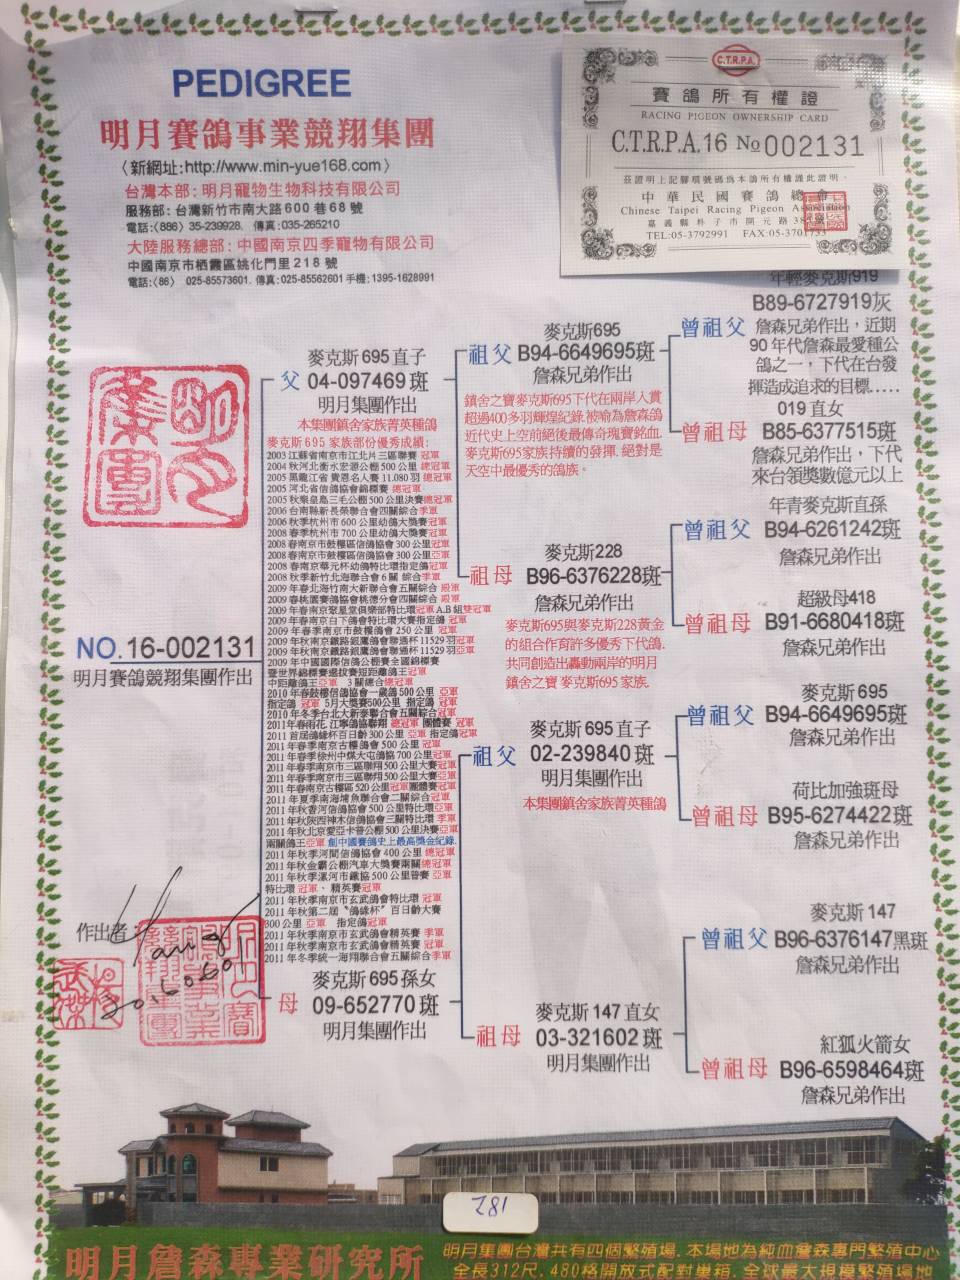 PEDIGREE
明月賽鴿事業競翔集團
〈新網址:http://www.min-yue168.com〉
台灣本部: 明月寵物生物科技有限公司
服務部: 台灣新竹市南大路600巷68號
電話:〈886〉35-239928. 傳真:035-265210
大陸服務總部: 中國南京四季寵物有限公司
中國南京市栖霞區姚化門里218號
電話:〈86〉 025-85573601. 傳真:025-85562601 手機:1395-1628991
C.T.R.P.A.
賽鴿所有權證
RACING PIGEON OWNERSHIP CARD
C.T.R.P.A.16 No 002131
茲證明上記腳環號碼為本鴿所有權謹此證明。
中華民國賽鴿總會
Chinese Taipei Racing Pigeon Association
嘉義縣朴子市開元路
TEL:05-3792991 FAX:05-3701733
NO.16-002131
明月賽鴿競翔集團作出
麥克斯695直子
父 04-097469斑
明月集團作出
本集團鎮舍家族菁英種鴿
麥克斯695家族部份優秀成績:
2003江蘇省南京市江北片三區聯賽 冠軍
2004秋河北衡水宏源公棚500公里 總冠軍
2005黑龍江省 貴恩名人賽 11.080羽 總冠軍
2005河北省信鴿協會錦標賽 總冠軍
2005秋秦皇島三毛公棚500公里決賽總冠軍
2006台南縣新長榮聯合會四關綜合季軍
2006秋季杭州市600公里幼鴿大獎賽冠軍
2008春季杭州市700公里幼鴿大獎賽冠軍
2008春南京市鼓樓區信鴿協會300公里冠軍
2008春南京市鼓樓區信鴿協會300公里亞軍
2008春南京華元杯幼鴿特比環指定鴿冠軍
2008秋季新竹北海聯合會6關 綜合季軍
2009年春北海竹南大新聯合會五關綜合 殿軍
2009春桃園賽鴿協會桃德分會四關綜合 殿軍
2009年春南京翠星堂俱樂部特比環冠軍A.B組雙冠軍
2009年春南京白下鴿會特比環大賽指定鴿 冠軍
2009年春季南京市鼓樓鴿會250公里 冠軍
2009年秋南京鐵路銀鷹鴿會聯通杯11529羽冠軍
2009年秋南京鐵路銀鷹鴿會聯通杯11529羽亞軍
2009年中國國際信鴿公棚賽全國錦標賽
暨世界錦標賽選拔賽短距離鴿王冠軍
中距離鴿王亞軍 3關總合總冠軍
2010年春鼓樓信鴿協會一歲鴿500公里 亞軍
指定鴿 冠軍 5月大獎賽500公里 指定鴿 冠軍
2010年冬季台北大新泰聯合會五關綜合冠軍
2011年春雨花.江寧鴿協聯翔 總冠軍 團體賽 冠軍
2011首屆鴿緣杯百日齡300公里 亞軍 指定鴿冠軍
2011年春季南京古樓鴿會500公里 冠軍
2011年春季徐州中煤大屯鴿協700公里冠軍
2011年春季南京市三區聯翔500公里大賽冠軍
2011年春季南京市三區聯翔500公里大賽亞軍
2011年春南京古樓區520公里冠軍團體賽冠軍
2011年夏季南海埔魚聯合會二關綜合冠軍
2011年秋香河信鴿協會500公里特比環亞軍
2011年秋陝西神木信鴿協會三關特比環 季軍
2011年秋北京愛亞卡普公棚500公里決賽亞軍
兩關鴿王亞軍 創中國賽鴿史上最高獎金紀錄.
2011年秋季河間信鴿協會400公里 總冠軍
2011年秋金霸公棚汽車大獎賽兩關 總冠軍
2011年秋季漯河市鐵協500公里普賽 亞軍
特比環 冠軍、精英賽冠軍
2011年秋季南京市玄武鴿會特比環 冠軍
2011年秋第二屆〝鴿緣杯〞百日齡大賽
300公里 亞軍 指定鴿冠軍
2011年秋季南京市玄武鴿會精英賽 季軍
2011年秋季南京市玄武鴿會精英賽 冠軍
2011年冬季統一海翔聯合會五關綜合季軍
麥克斯695孫女
母 09-652770斑
明月集團作出
麥克斯695
祖父 B94-6649695斑
詹森兄弟作出
鎮舍之寶麥克斯695下代在兩岸入賞
超過400多羽輝煌紀錄.被喻為詹森鴿
近代史上空前絕後最傳奇瑰寶銘血.
麥克斯695家族持續的發揮.絕對是
天空中最優秀的鴿族。
麥克斯228
祖母 B96-6376228斑
詹森兄弟作出
麥克斯695與麥克斯228黃金
的組合作育許多優秀下代鴿.
共同創造出轟動兩岸的明月
鎮舍之寶 麥克斯695家族.
麥克斯 695直子
祖父 02-239840斑
明月集團作出
本集團鎮舍家族菁英種鴿
麥克斯 147直女
祖母 03-321602斑
明月集團作出
年輕麥克斯919
B89-6727919灰
曾祖父 詹森兄弟作出，近期
90年代詹森最愛種公
鴿之一，下代在台發
揮造成追求的目標.....
019直女
曾祖母 B85-6377515斑
詹森兄弟作出，下代
來台領獎數億元以上
年青麥克斯直孫
曾祖父 B94-6261242斑
詹森兄弟作出
超級母418
曾祖母 B91-6680418斑
詹森兄弟作出
麥克斯 695
曾祖父 B94-6649695斑
詹森兄弟作出
荷比加強斑母
曾祖母 B95-6274422斑
詹森兄弟作出
麥克斯 147
曾祖父 B96-6376147黑斑
詹森兄弟作出
紅狐火箭女
曾祖母 B96-6598464斑
詹森兄弟作出
作出者:
281
明月詹森專業研究所
明月集團台灣共有四個繁殖場.本場地為純血詹森專門繁殖中心
全長312尺.480格開放式配對巢箱.全球最大規模繁殖場地